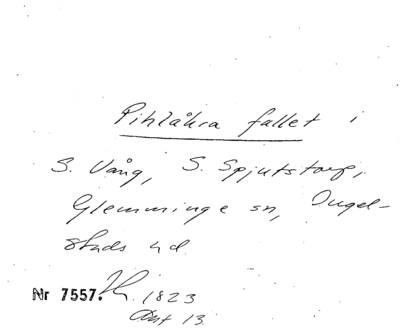 Pihlåkra fallet i
S. Vång, S. Spjutstorp,
Glemminge sn, Ingel-
stads hd
Nr 7557. 1823
Akt 13.